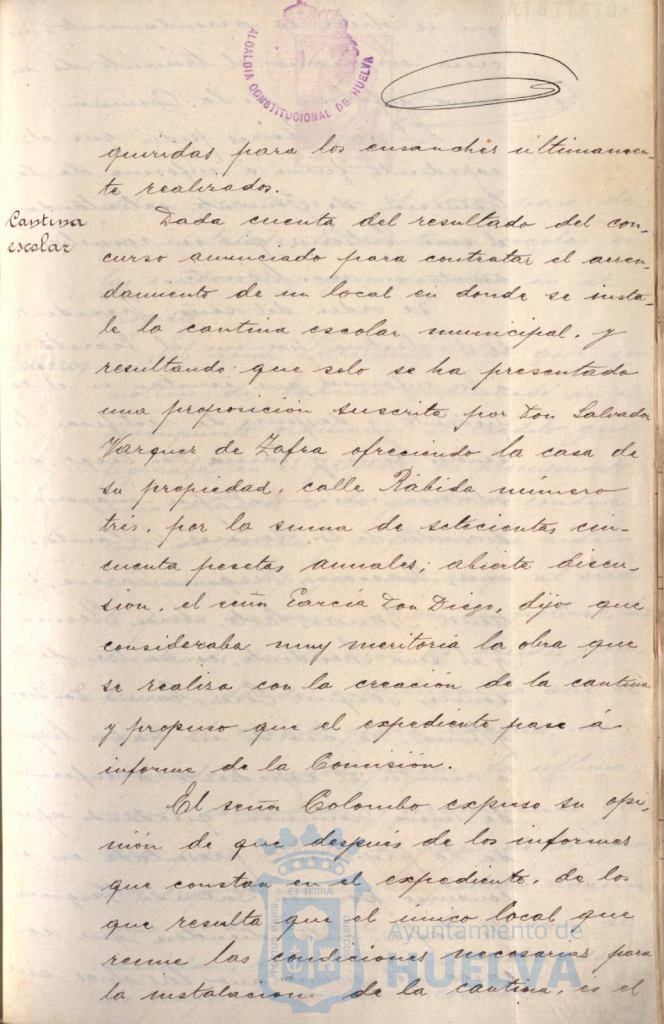 ALCALDIA CONSTITUCIONAL DE HUELVA
queridas para los ensanches ultimamen-
te realizados.
Cantina
escolar
Dada cuenta del resultado del con-
curso anunciado para contratar el arren-
damiento de un local en donde se insta-
le la cantina escolar municipal. y
resultando que solo se ha presentado
una proposición suscrita por Don Salvador
Vazquez de Zafra ofreciendo la casa de
su propiedad, calle Rábida número
trés, por la suma de setecientas cin-
cuenta pesetas anuales; abierta discu-
sion, el señor García Don Diego, dijo que
consideraba muy meritoria la obra que
se realiza con la creación de la cantina
y propuso que el expediente pase á
informe de la Comisión.
El señor Colombo expuso su opi-
nión de que después de los informes
que constan en el expediente, de los
que resulta que el único local que
reune las condiciones necesarias para
la instalacion de la cantina, es el
Ayuntamiento de
HUELVA